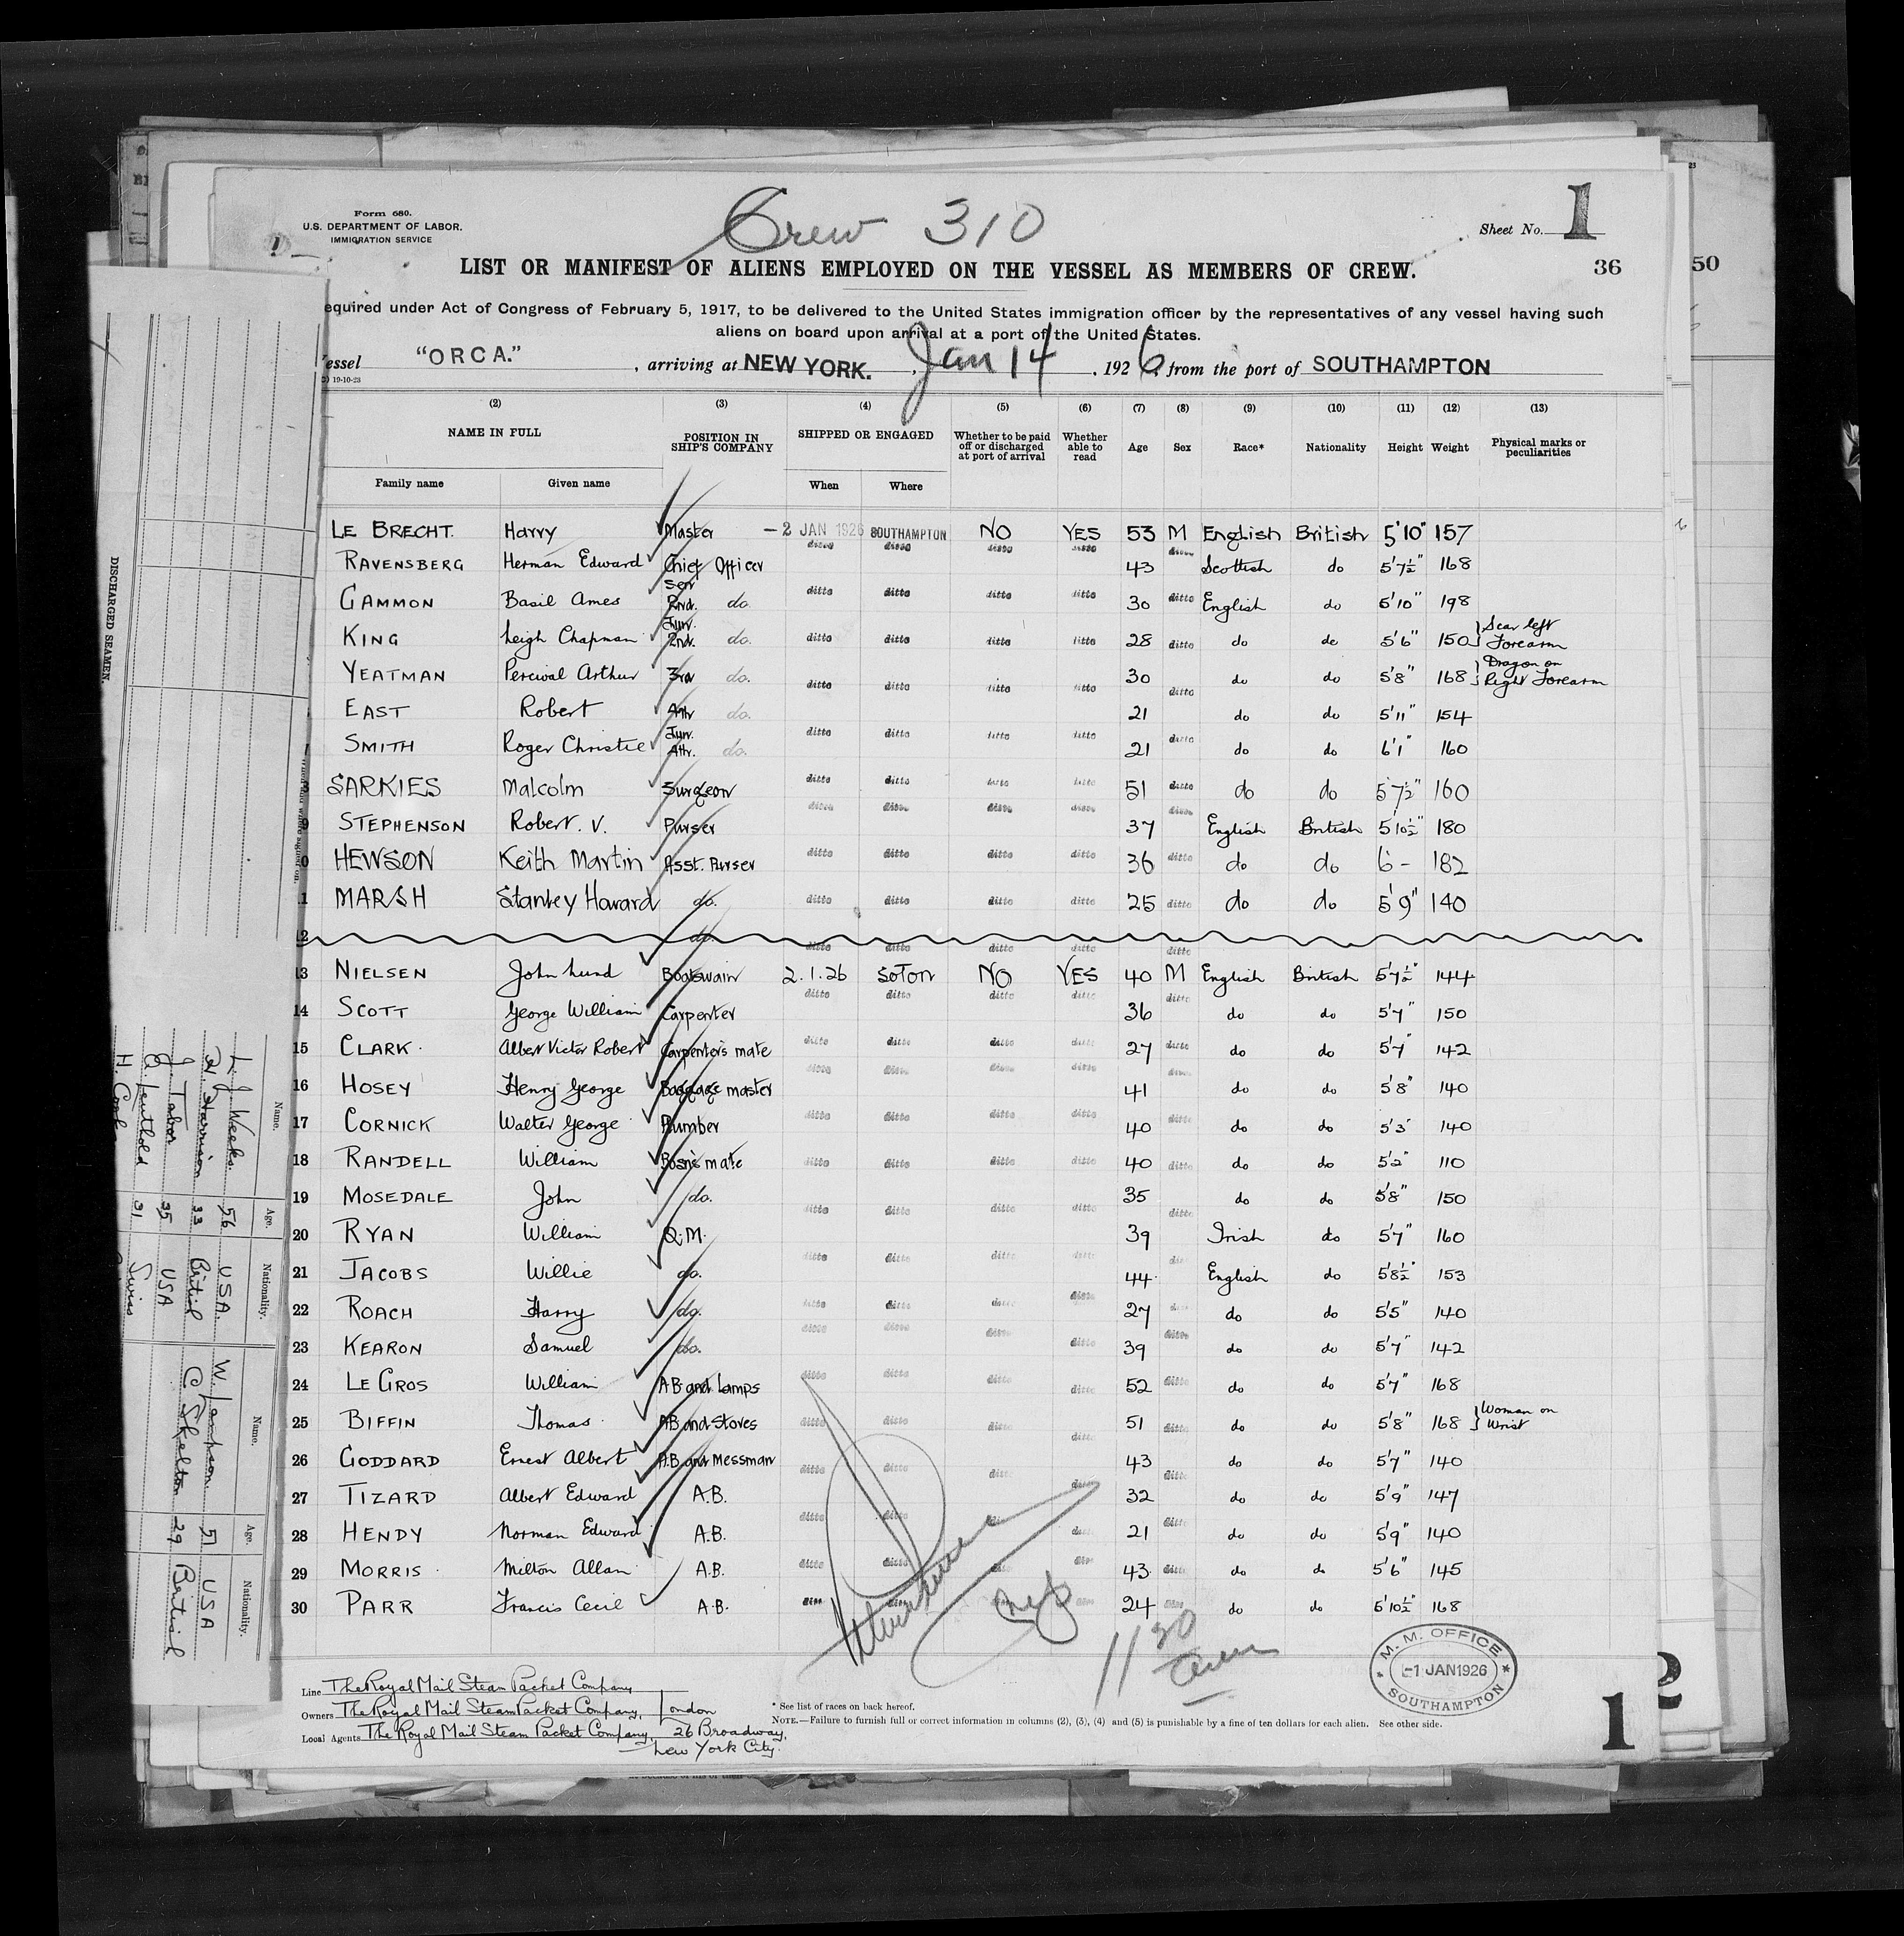 Form 680.
U.S. DEPARTMENT OF LABOR.
IMMIGRATION SERVICE
Crew 310
Sheet No. 1
LIST OR MANIFEST OF ALIENS EMPLOYED ON THE VESSEL AS MEMBERS OF CREW.
36
50
equired under Act of Congress of February 5, 1917, to be delivered to the United States immigration officer by the representatives of any vessel having such
aliens on board upon arrival at a port of the United States.
essel "ORCA." , arriving at NEW YORK. , Jan 14 , 1926, from the port of SOUTHAMPTON
19-10-23
(2) (3) (4) (5) (6) (7) (8) (9) (10) (11) (12) (13)
NAME IN FULL POSITION IN SHIP'S COMPANY SHIPPED OR ENGAGED Whether to be paid off or discharged at port of arrival Whether able to read Age Sex Race* Nationality Height Weight Physical marks or peculiarities
Family name Given name When Where
LE BRECHT. Harry Master - 2 JAN 1926 SOUTHAMPTON NO YES 53 M English British 5'10" 157
RAVENSBERG Herman Edward Chief Officer ditto ditto ditto ditto 43 ditto Scottish do 5'7½" 168
GAMMON Basil Ames Senr 2nd. do. ditto ditto ditto ditto 30 ditto English do 5'10" 198
KING Leigh Chapman Jun. 2nd. do. ditto ditto ditto ditto 28 ditto do do 5'6" 150 Scar left Forearm
YEATMAN Percival Arthur 3rd do. ditto ditto ditto ditto 30 ditto do do 5'8" 168 Dragon on Right Forearm
EAST Robert 4th do. 21 do do 5'11" 154
SMITH Roger Christie Jun. 4th. do. ditto ditto ditto ditto 21 ditto do do 6'1" 160
SARKIES Malcolm Surgeon ditto ditto ditto ditto 51 ditto do do 5'7½" 160
9 STEPHENSON Robert. V. Purser ditto ditto ditto ditto 37 ditto English British 5'10½" 180
0 HEWSON Keith Martin Asst. Purser ditto ditto ditto ditto 36 ditto do do 6 - 182
1 MARSH Stanley Howard do. ditto ditto ditto ditto 25 ditto do do 5'9" 140
12 do. ditto ditto ditto ditto ditto
13 NIELSEN John Lund Boatswain 2.1.26 SOTON NO YES 40 M English British 5'7½" 144
14 SCOTT George William Carpenter ditto ditto ditto ditto 36 ditto do do 5'7" 150
15 CLARK. Albert Victor Robert Carpenter's mate ditto ditto ditto ditto 27 ditto do do 5'7" 142
16 HOSEY Henry George Baggage master ditto ditto ditto ditto 41 ditto do do 5'8" 140
17 CORNICK Walter George Plumber ditto ditto ditto ditto 40 ditto do do 5'3" 140
18 RANDELL William Bosn's mate ditto ditto ditto ditto 40 ditto do do 5'2" 110
19 MOSEDALE John do. 35 do do 5'8" 150
20 RYAN William Q.M. ditto ditto ditto ditto 39 ditto Irish do 5'7" 160
21 JACOBS Willie do. ditto ditto ditto ditto 44 English do 5'8½" 153
22 ROACH Harry do. ditto ditto ditto ditto 27 do do 5'5" 140
23 KEARON Samuel do. ditto ditto ditto ditto 39 ditto do do 5'7" 142
24 LE GROS William AB and Lamps ditto ditto ditto ditto 52 ditto do do 5'7" 168
25 BIFFIN Thomas. AB and Stores ditto ditto ditto ditto 51 ditto do do 5'8" 168 Woman on Wrist
26 GODDARD Ernest Albert A.B and Messman ditto ditto 43 ditto do do 5'7" 140
27 TIZARD Albert Edward A.B. 32 do do 5'9" 147
28 HENDY Norman Edward A.B. ditto ditto 21 ditto do do 5'9" 140
29 MORRIS. Milton Allan A.B. ditto ditto 43 ditto do do 5'6" 145
30 PARR Francis Cecil A.B. 24 do do 5'10½" 168
11 30
M. M. OFFICE
-1 JAN 1926
SOUTHAMPTON
Line The Royal Mail Steam Packet Company
Owners The Royal Mail Steam Packet Company, London
Local Agents The Royal Mail Steam Packet Company, 26 Broadway, New York City.
* See list of races on back hereof.
NOTE.—Failure to furnish full or correct information in columns (2), (3), (4) and (5) is punishable by a fine of ten dollars for each alien. See other side.
1
2
DISCHARGED SEAMEN.
Name. Age. Nationality. Name. Age. Nationality.
L. J. Weeks. 56 U.S.A. W. Lampson. 57 USA
H. Harrison 33 British C Skelton 29 British
J. Tabor 35 USA
Q. Leuthold 31 Swiss
H. Cook